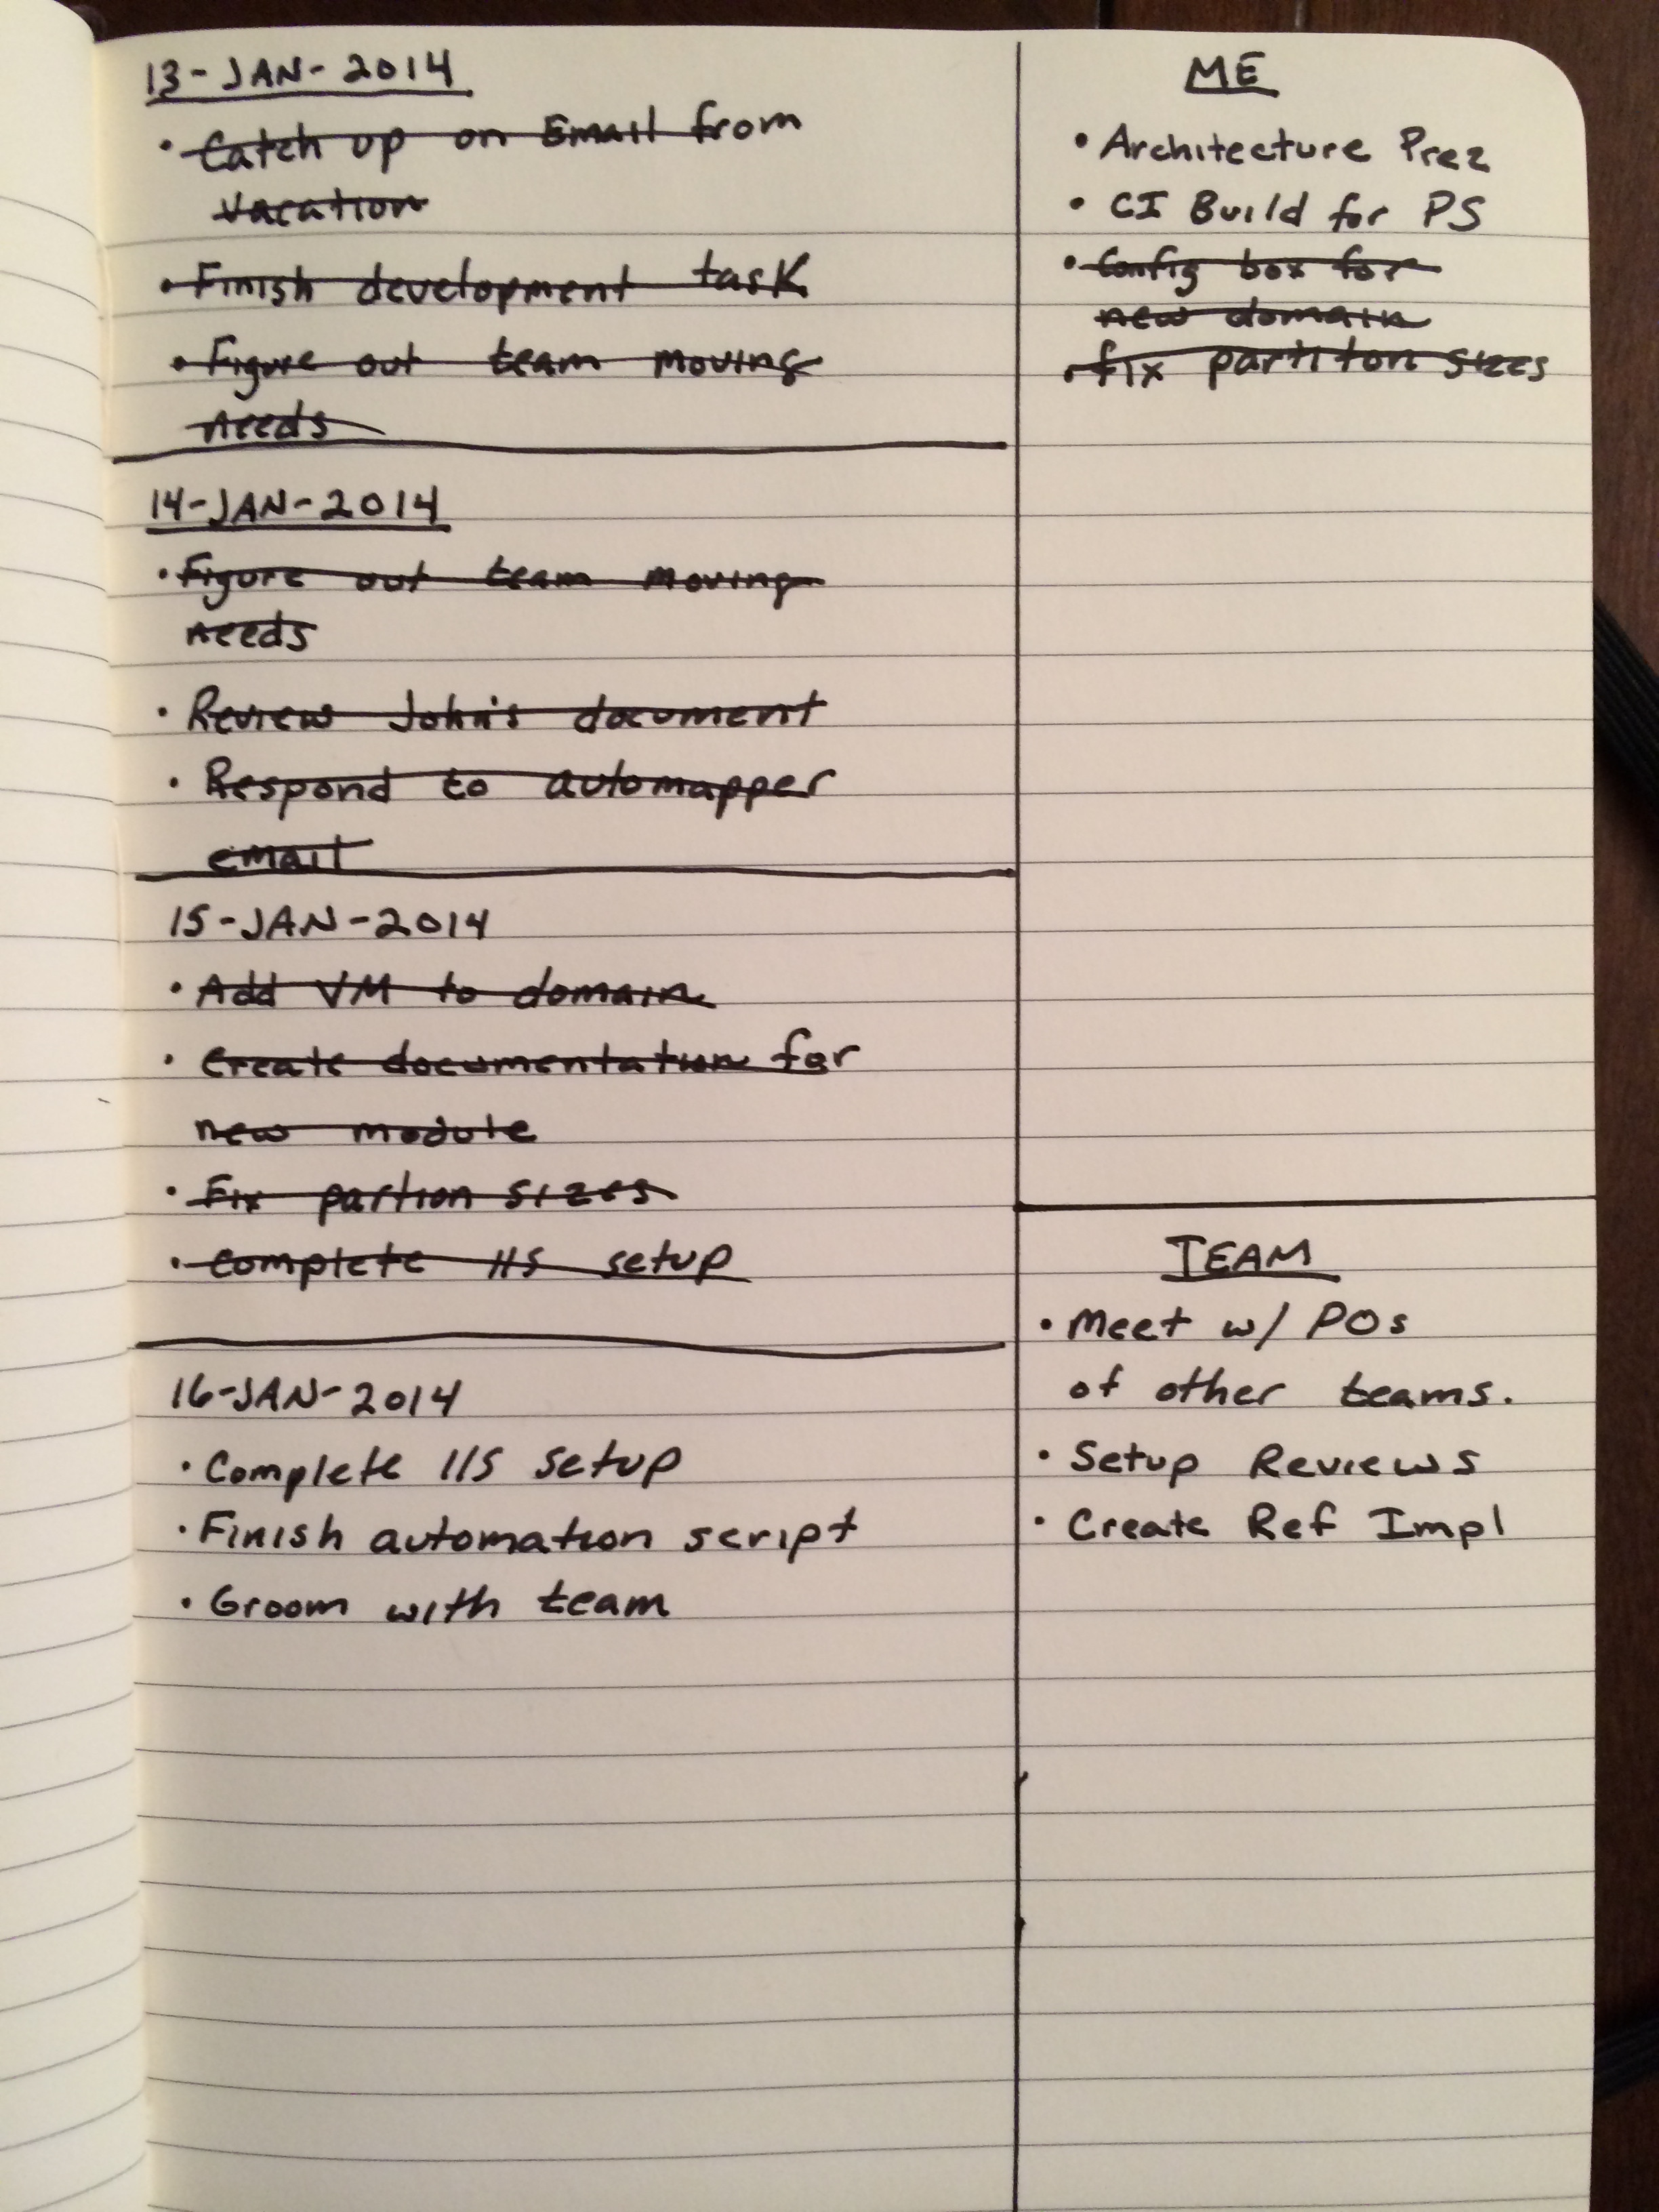 13-JAN-2014
• Catch up on Email from
vacation
• Finish development task
• Figure out team moving
needs
14-JAN-2014
• Figure out team moving
needs
• Review John's document
• Respond to automapper
email
15-JAN-2014
• Add VM to domain
• Create documentation for
new module
• Fix partion sizes
• Complete IIS setup
16-JAN-2014
• Complete IIS setup
• Finish automation script
• Groom with team
ME
• Architecture Prez
• CI Build for PS
• Config box for
new domain
• fix partiton sizes
TEAM
• Meet w/ POs
of other teams.
• Setup Reviews
• Create Ref Impl